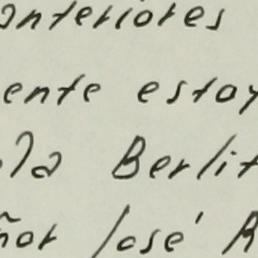 anteriores
ente estoy
la Berlit
ñor José R